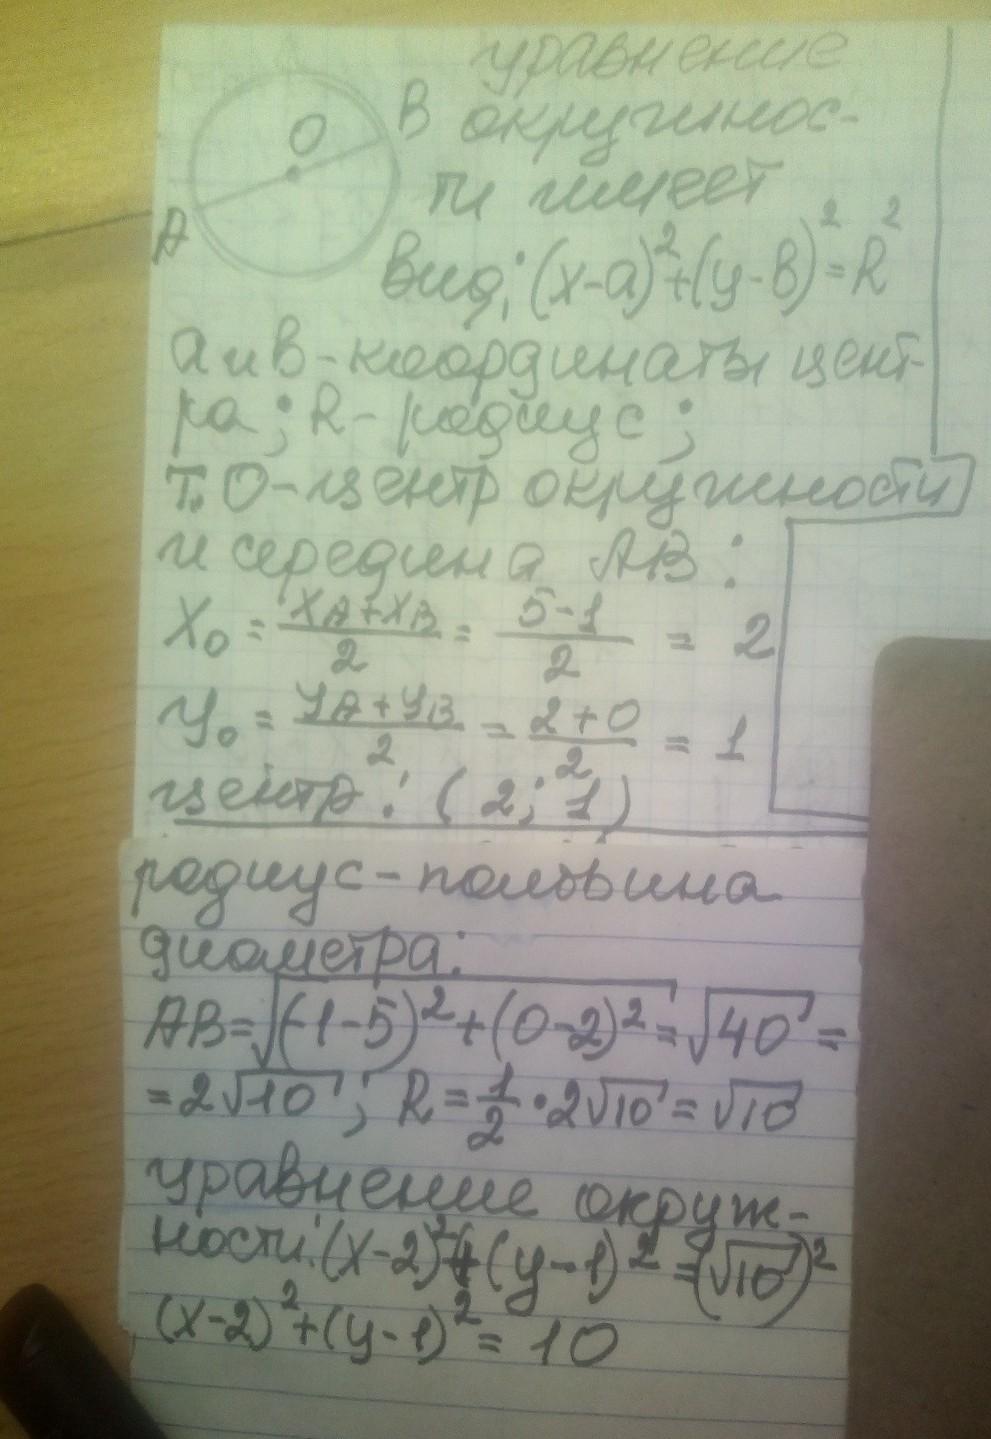 уравнение
О В окружнос-
ти имеет
А
вид: (x-а)²+(y-в)²=R²
а и в-координаты цент-
ра; R-радиус;
т.О-центр окружности
и середина АВ:
x₀ = (xA+xB)/2 = (5-1)/2 = 2
y₀ = (yA+yB)/2 = (2+0)/2 = 1
центр: (2; 1)
радиус-половина
диаметра:
АВ=√((-1-5)²+(0-2)²)=√40=
=2√10; R=1/2·2√10=√10
уравнение окруж-
ности: (x-2)²+(y-1)²=(√10)²
(x-2)²+(y-1)²=10